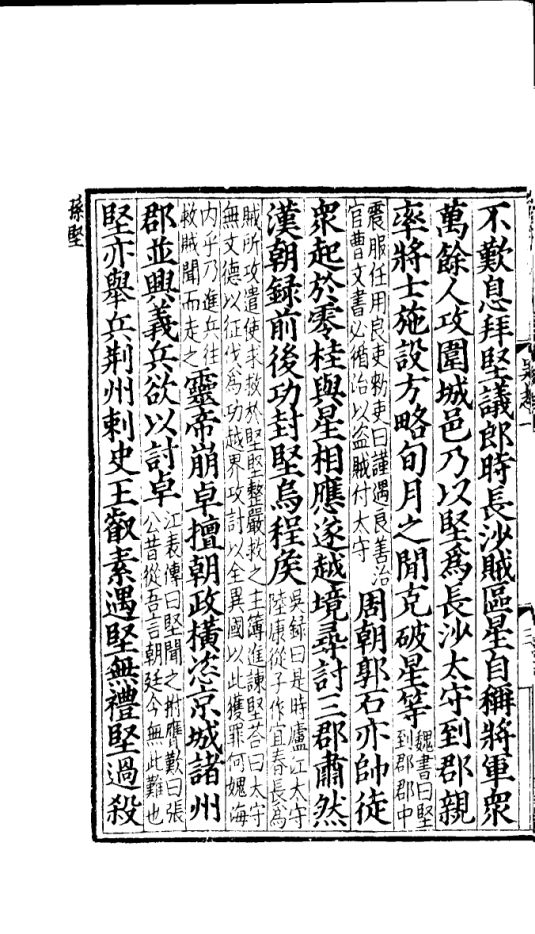 不歎息拜堅議郎時長沙賊區星自稱將軍衆
萬餘人攻圍城邑乃以堅爲長沙太守到郡親
率將士施設方略旬月之間克破星等魏書曰堅
到郡郡中
震服任用良吏勑吏曰謹遇良善治
官曹文書必循治以盗賊付太守
周朝郭石亦帥徒
衆起於零桂與星相應遂越境尋討三郡肅然
漢朝録前後功封堅烏程矦吳録曰是時廬江太守
陸康從子作宜春長爲
賊所攻遣使求救於堅堅整嚴救之主簿進諫堅荅曰太守
無文德以征伐爲功越界攻討以全異國以此獲罪何媿海
内乎乃進兵往
救賊聞而走之
靈帝崩卓擅朝政橫恣京城諸州
郡並興義兵欲以討卓江表傳曰堅聞之拊膺歎曰張
公昔從吾言朝廷今無此難也
堅亦舉兵荆州刺史王叡素遇堅無禮堅過殺
孫堅